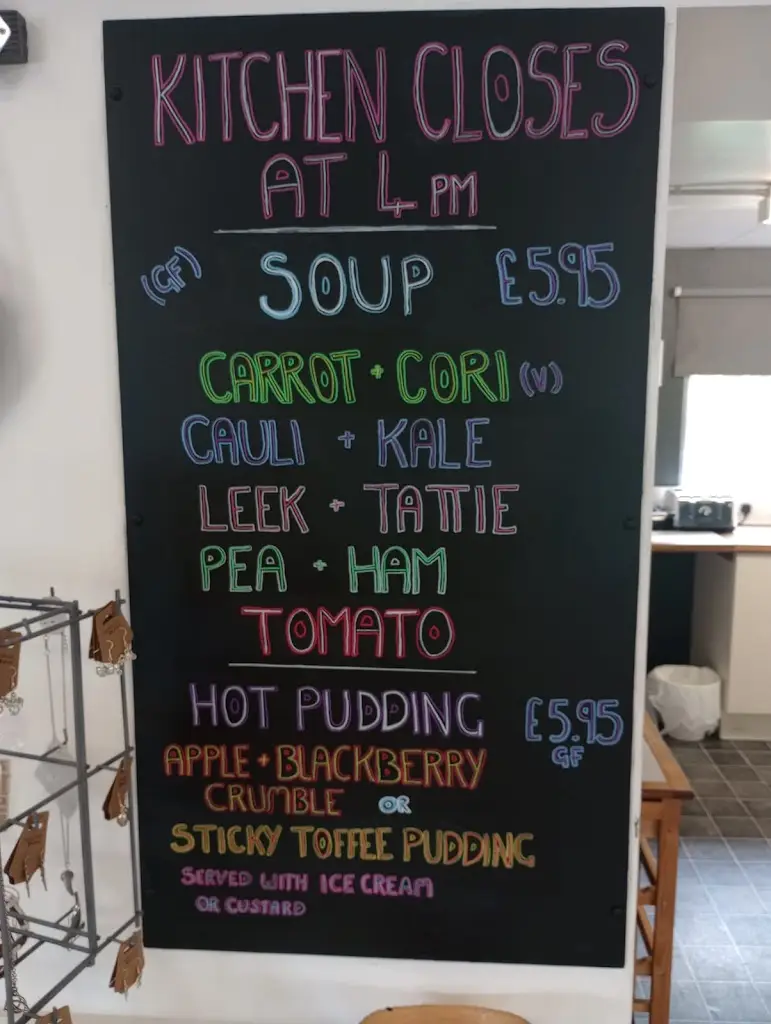 KITCHEN CLOSES
AT 4 PM
(GF) SOUP £5.95
CARROT + CORI (V)
CAULI + KALE
LEEK + TATTIE
PEA + HAM
TOMATO
HOT PUDDING £5.95
GF
APPLE + BLACKBERRY
CRUMBLE OR
STICKY TOFFEE PUDDING
SERVED WITH ICE CREAM
OR CUSTARD